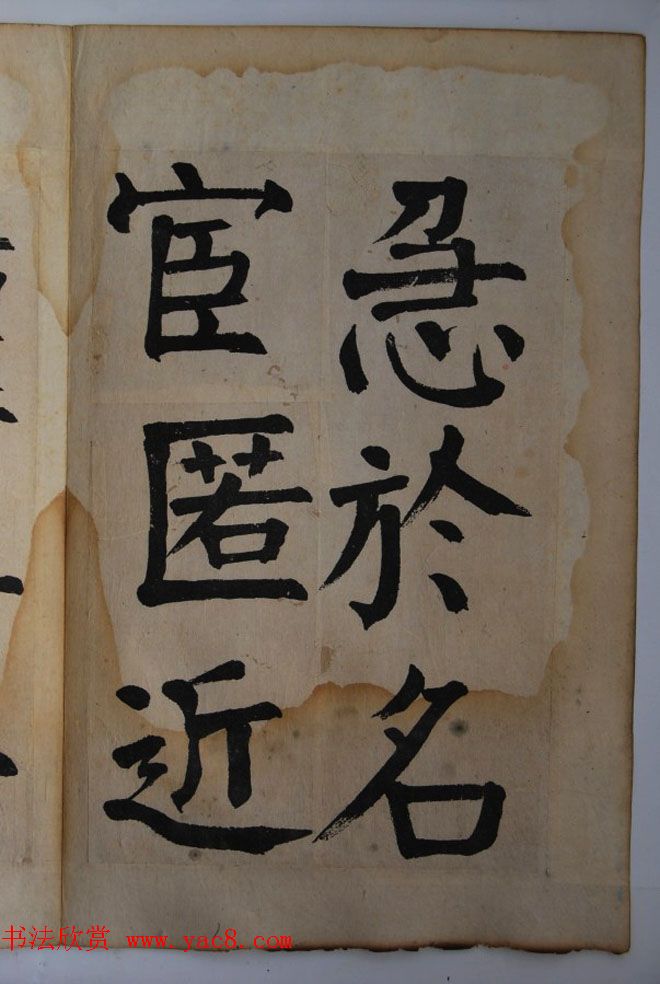 急於名
宦匿近
书法欣赏 www.yac8.com